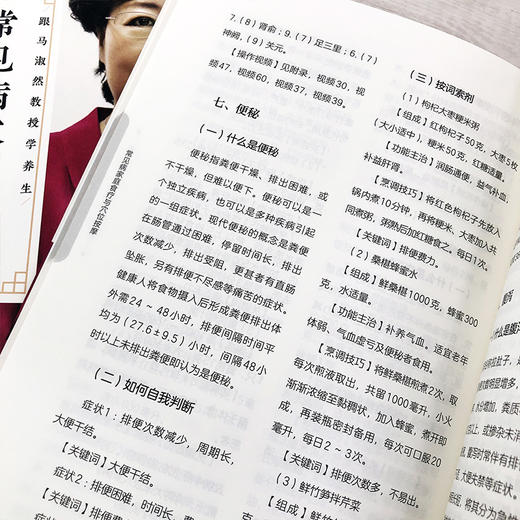 跟马淑然教授学养生
常见病家庭食疗与穴位按摩
7.(8)肾俞;9.(7)足三里;6.(7)
神阙,(9)关元。
【操作视频】见附录,视频30,视
频47,视频60,视频37,视频39。
七、便秘
(一)什么是便秘
便秘指粪便干燥,排出困难,或
不干燥,但难以便下。便秘可以是一
个独立疾病,也可以是多种疾病引起
的一组症状。现代便秘的概念是粪便
在肠管通过困难,停留时间长,排出
次数减少,排出受阻,更甚者有直肠
坠胀,另有排便不尽感等痛苦的症状。
健康人将食物摄入后形成粪便排出体
外需24~48小时,排便间隔时间平
均为(27.6±9.5)小时,间隔48小
时以上未排出粪便即认为是便秘。
(二)如何自我判断
症状1:排便次数减少,周期长,
大便干结。
【关键词】大便干结。
症状2:排便困难,时间长,费
(三)按词索剂
(1)枸杞大枣粳米粥
【组成】红枸杞子50克,大枣5枚
(大小适中),粳米50克,红糖适量。
【功能主治】润肠通便,益气补血,
补益肝肾。
【烹调技巧】将红色枸杞子先放入
锅内煮10分钟,再将粳米、大枣加入共
同煮粥,粥熟后加红糖食之。每日1次。
【关键词】排便费力。
(2)桑椹蜂蜜水
【组成】鲜桑椹1000克,蜂蜜300
克,水适量。
【功能主治】补养气血。适宜老年
体弱、气血虚亏及便秘者食用。
【烹调技巧】将鲜桑椹煎煮2次,取
每次煎液取出,共留1000毫升,小火
渐渐浓缩至黏稠状,加入蜂蜜,煮开即
成,再装瓶密封备用,每次可口服20
毫升,每日2~3次。
【关键词】排便次数多,不易出。
(3)鲜竹笋拌芹菜